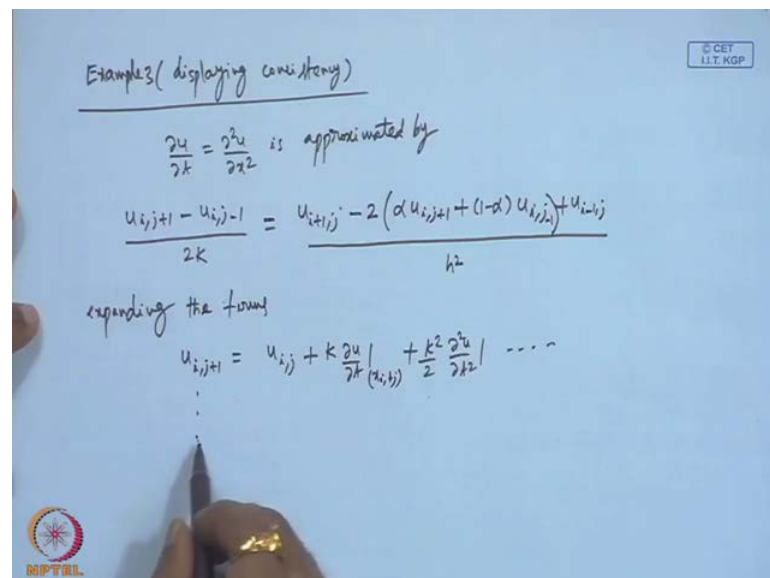 © CET
I.I.T. KGP
Example3 ( displaying consistency)
∂u/∂t = ∂²u/∂x² is approximated by
(u_{i,j+1} - u_{i,j-1})/2k = (u_{i+1,j} - 2(αu_{i,j+1} + (1-α) u_{i,j-1}) + u_{i-1,j})/h²
expanding the terms
u_{i,j+1} = u_{i,j} + k ∂u/∂t|_{(x_i,t_j)} + k²/2 ∂²u/∂t²| ----
NPTEL